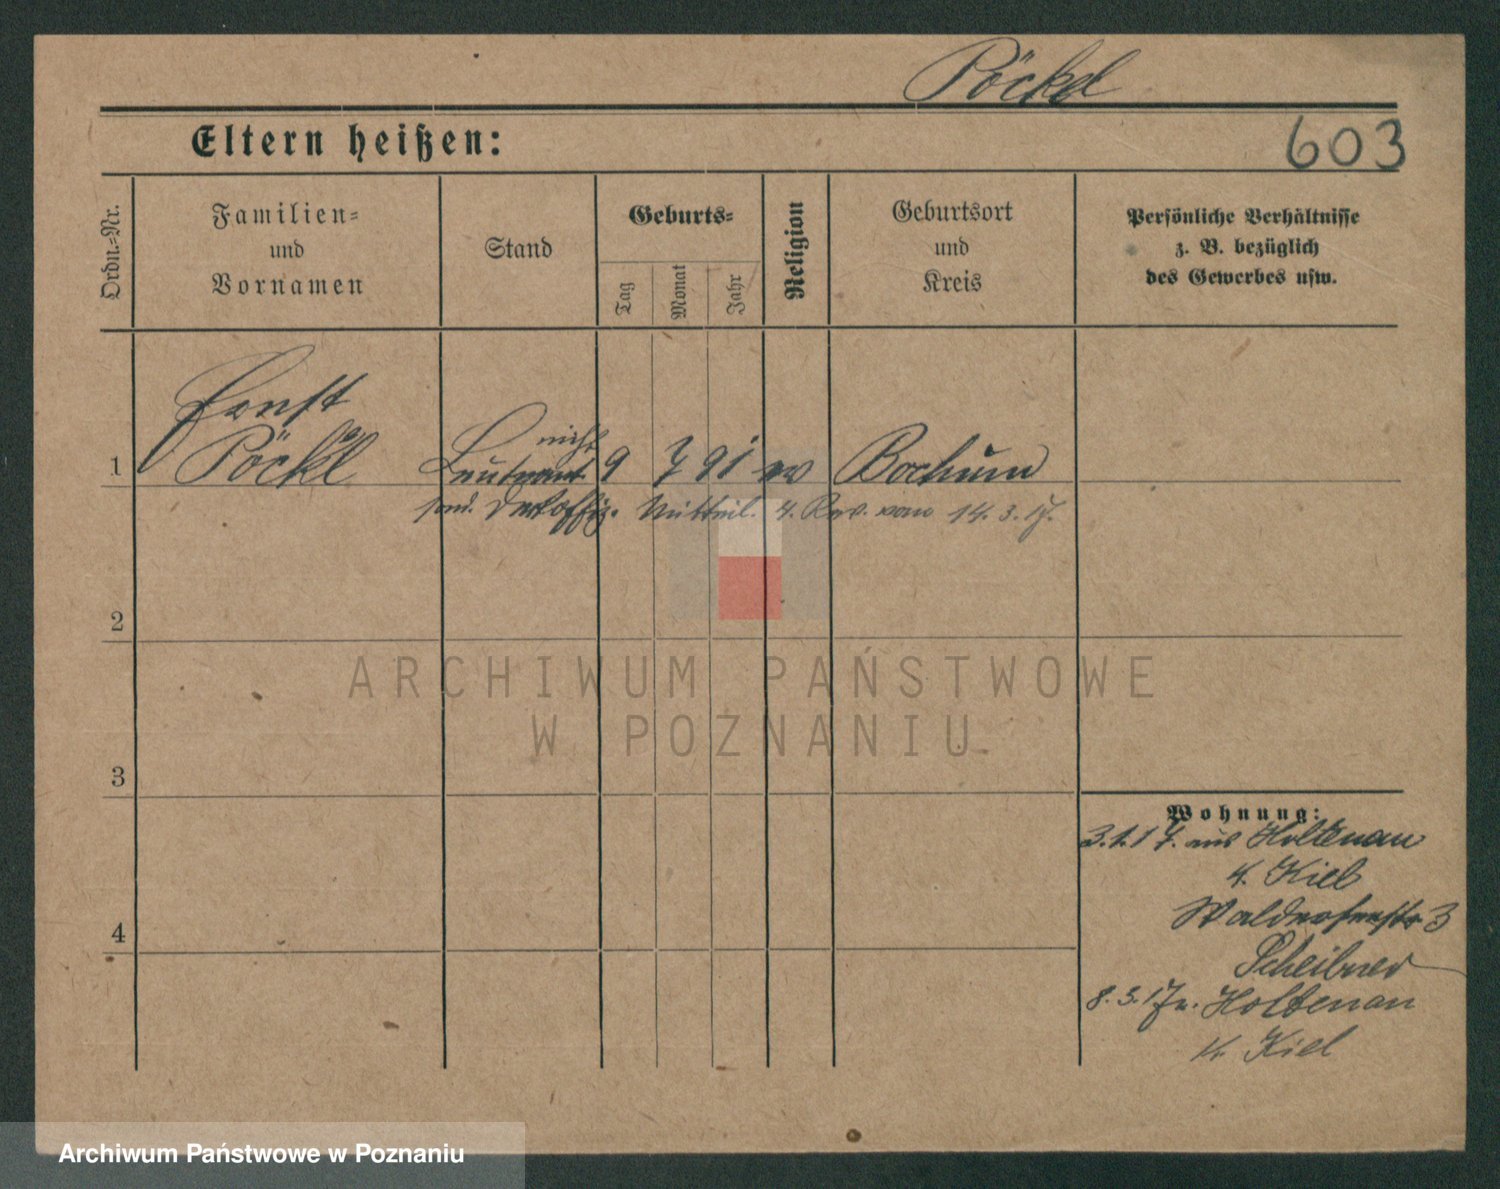 Pöckel
Eltern heißen:
603
Ordn.-Nr.
Familien-
und
Vornamen
Stand
Geburts-
Tag
Monat
Jahr
Religion
Geburtsort
und
Kreis
Persönliche Verhältnisse
z. B. bezüglich
des Gewerbes usw.
Ernst
nicht
1 Pöckel Leutnant 9 7 91 ev Bochum
sond. Deckoffiz. Mitteil. 4. Rev. vom 14.3.17.
2
ARCHIWUM PAŃSTWOWE
W POZNANIU
3
Wohnung:
3.1.17. aus Holtenau
K. Kiel
Walderseestr 3
Scheibner
4
8.3.17 n. Holtenau
K. Kiel
Archiwum Państwowe w Poznaniu